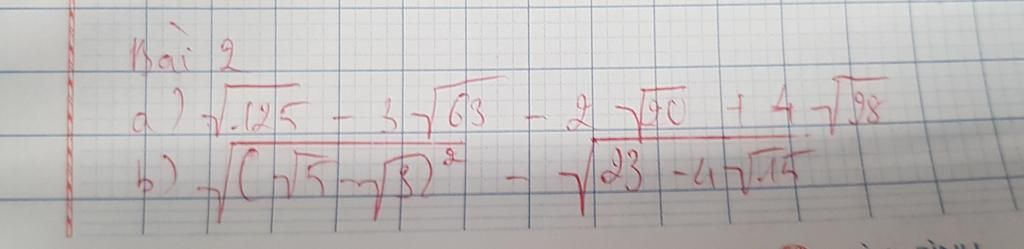 Bài 2
a) √125 - 3√63 - 2√90 + 4√98
b) √(√5-√3)² - √23 - 4√15